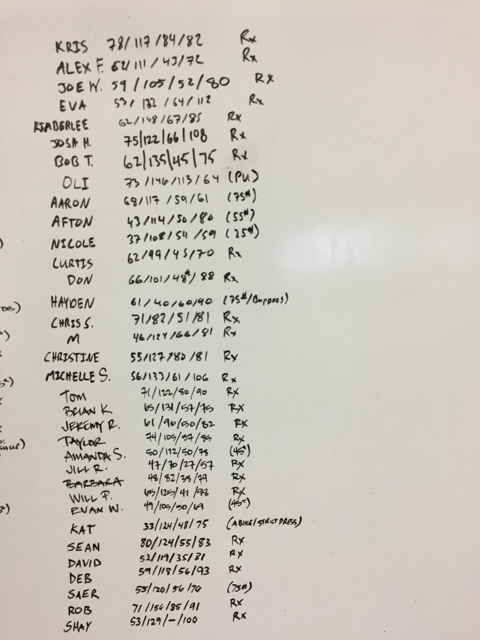 KRIS 78/117/84/82 Rx
ALEX F. 62/111/43/72 Rx
JOE W. 59/105/52/80 Rx
EVA 53/132/64/112 Rx
KIMBERLEE 62/148/67/85 Rx
JOSH H. 75/122/66/108 Rx
BOB T. 62/135/45/75 Rx
OLI 73/146/113/64 (PU)
AARON 68/117/59/61 (75#)
AFTON 43/114/50/80 (55#)
NICOLE 37/108/54/59 (25#)
CURTIS 62/99/45/70 Rx
DON 66/101/48/88 Rx
HAYDEN 61/40/60/90 (75#/Burpees)
CHRIS S. 71/82/51/81 Rx
M 46/124/66/81 Rx
CHRISTINE 55/127/80/81 Rx
MICHELLE S. 56/133/61/106 Rx
TOM 71/122/80/90 Rx
BRIAN K 65/131/57/75 Rx
JEREMY R. 61/96/50/82 Rx
TAYLOR 74/105/57/85 Rx
AMANDA S. 50/112/50/78 (45#)
JILL R. 47/70/27/57 Rx
BARBARA 48/82/39/79 Rx
WILL P. 65/125/41/98 Rx
EVAN W. 49/105/50/69 (45#)
KAT 33/124/48/75 (ABIKE/STRICT PRESS)
SEAN 80/124/55/83 Rx
DAVID 52/119/35/81 Rx
DEB 59/118/56/93 Rx
SAER 55/120/56/76 (75#)
ROB 71/156/85/91 Rx
SHAY 53/129/-/100 Rx